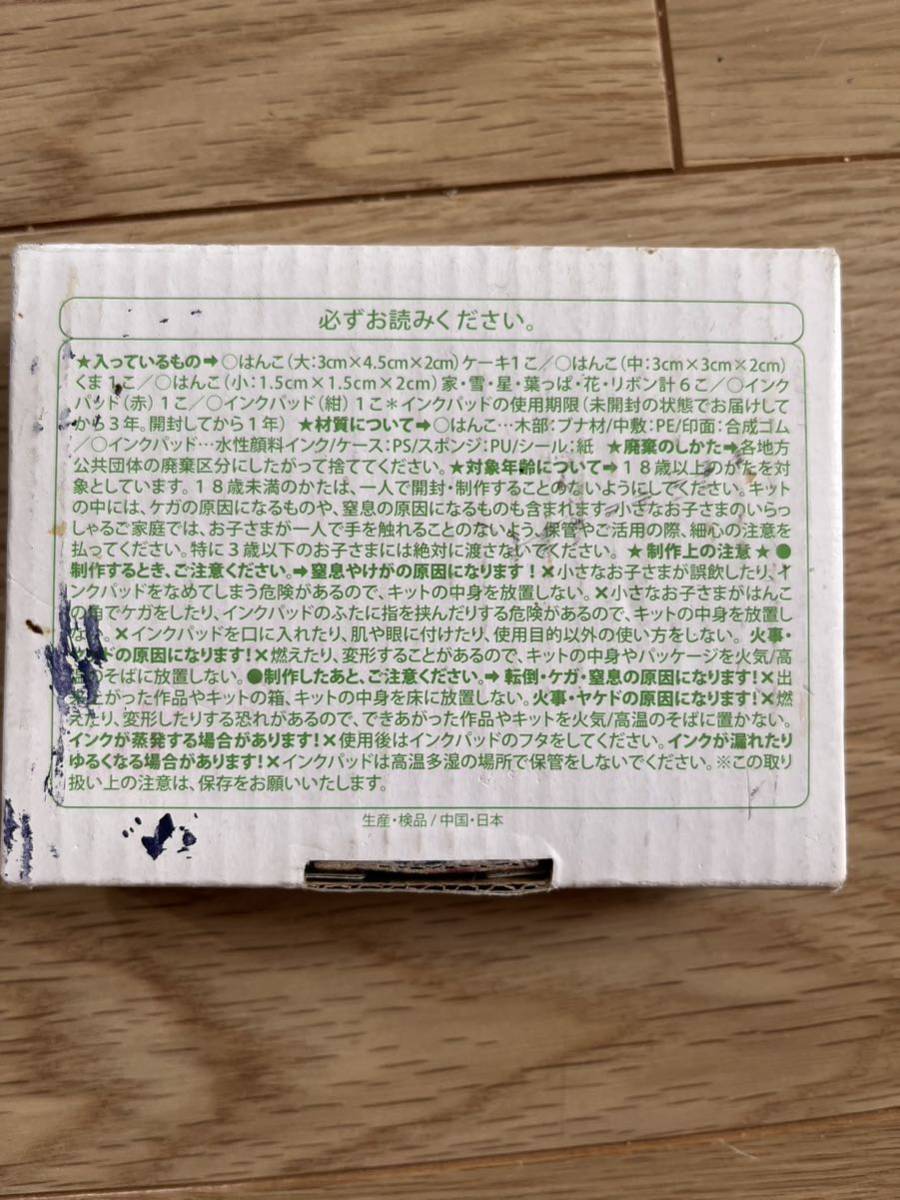 必ずお読みください。
★入っているもの➡○はんこ(大:3cm×4.5cm×2cm)ケーキ1こ/○はんこ(中:3cm×3cm×2cm)
くま1こ/○はんこ(小:1.5cm×1.5cm×2cm)家・雪・星・葉っぱ・花・リボン計6こ/○インク
パッド(赤)1こ/○インクパッド(紺)1こ＊インクパッドの使用期限(未開封の状態でお届けして
から3年。開封してから1年) ★材質について➡○はんこ…木部:ブナ材/中敷:PE/印面:合成ゴム
/○インクパッド…水性顔料インク/ケース:PS/スポンジ:PU/シール:紙 ★廃棄のしかた➡各地方
公共団体の廃棄区分にしたがって捨ててください。★対象年齢について➡18歳以上のかたを対
象としています。18歳未満のかたは、一人で開封・制作することのないようにしてください。キット
の中には、ケガの原因になるものや、窒息の原因になるものも含まれます。小さなお子さまのいらっ
しゃるご家庭では、お子さまが一人で手を触れることのないよう、保管やご活用の際、細心の注意を
払ってください。特に3歳以下のお子さまには絶対に渡さないでください。 ★制作上の注意★●
制作するとき、ご注意ください。➡窒息やけがの原因になります!×小さなお子さまが誤飲したり、イ
ンクパッドをなめてしまう危険があるので、キットの中身を放置しない。×小さなお子さまがはんこ
の角でケガをしたり、インクパッドのふたに指を挟んだりする危険があるので、キットの中身を放置し
ない。×インクパッドを口に入れたり、肌や眼に付けたり、使用目的以外の使い方をしない。火事・
ヤケドの原因になります!×燃えたり、変形することがあるので、キットの中身やパッケージを火気/高
温のそばに放置しない。●制作したあと、ご注意ください。➡転倒・ケガ・窒息の原因になります!×出
来上がった作品やキットの箱、キットの中身を床に放置しない。火事・ヤケドの原因になります!×燃
えたり、変形したりする恐れがあるので、できあがった作品やキットを火気/高温のそばに置かない。
インクが蒸発する場合があります!×使用後はインクパッドのフタをしてください。インクが漏れたり
ゆるくなる場合があります!×インクパッドは高温多湿の場所で保管をしないでください。※この取り
扱い上の注意は、保存をお願いいたします。
生産・検品/中国・日本